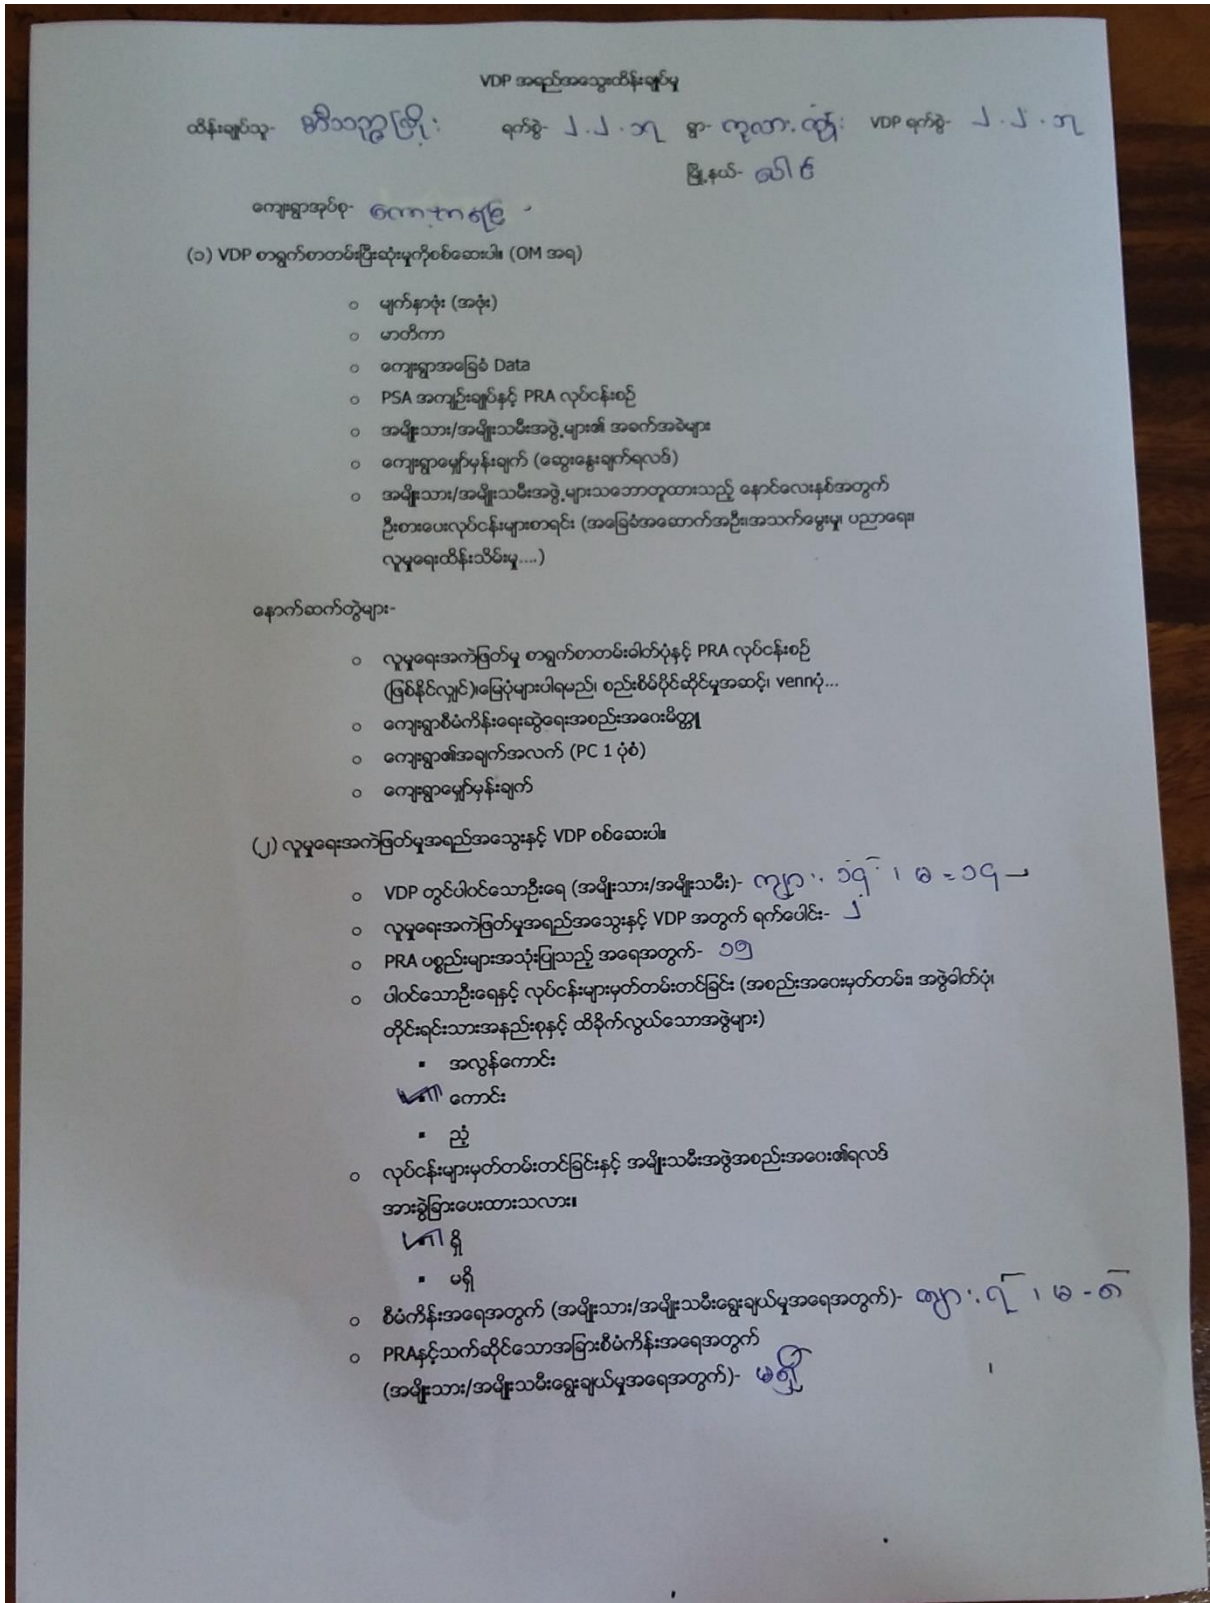 VDP အရည်အသွေးထိန်းချုပ်မှု
ထိန်းချုပ်သူ- ရက်စွဲ- ၂.၂.၁၇ ရွာ- ကုလား VDP ရက်စွဲ- ၂.၂.၁၇
မြို့နယ်-
ကျေးရွာအုပ်စု-
(၁) VDP စာရွက်စာတမ်းပြီးဆုံးမှုကိုစစ်ဆေးပါ။ (OM အရ)
○ မျက်နှာဖုံး (အဖုံး)
○ မာတိကာ
○ ကျေးရွာအခြေခံ Data
○ PSA အကျဉ်းချုပ်နှင့် PRA လုပ်ငန်းစဉ်
○ အမျိုးသား/အမျိုးသမီးအဖွဲ့များ၏ အခက်အခဲများ
○ ကျေးရွာမျှော်မှန်းချက် (ဆွေးနွေးချက်ရလဒ်)
○ အမျိုးသား/အမျိုးသမီးအဖွဲ့များသဘောတူထားသည့် နောင်လေးနှစ်အတွက်
ဦးစားပေးလုပ်ငန်းများစာရင်း (အခြေခံအဆောက်အဦး၊အသက်မွေးမှု၊ ပညာရေး၊
လူမှုရေးထိန်းသိမ်းမှု....)
နောက်ဆက်တွဲများ-
○ လူမှုရေးအကဲဖြတ်မှု စာရွက်စာတမ်းဓါတ်ပုံနှင့် PRA လုပ်ငန်းစဉ်
(ဖြစ်နိုင်လျှင်)၊မြေပုံများပါရမည်၊ စည်းစိမ်ပိုင်ဆိုင်မှုအဆင့်၊ vennပုံ...
○ ကျေးရွာစီမံကိန်းရေးဆွဲရေးအစည်းအဝေးမိတ္တူ
○ ကျေးရွာ၏အချက်အလက် (PC 1 ပုံစံ)
○ ကျေးရွာမျှော်မှန်းချက်
(၂) လူမှုရေးအကဲဖြတ်မှုအရည်အသွေးနှင့် VDP စစ်ဆေးပါ။
○ VDP တွင်ပါဝင်သောဦးရေ (အမျိုးသား/အမျိုးသမီး)- ကျား-၁၄ ၊ မ = ၁၄
○ လူမှုရေးအကဲဖြတ်မှုအရည်အသွေးနှင့် VDP အတွက် ရက်ပေါင်း- ၂
○ PRA ပစ္စည်းများအသုံးပြုသည့် အရေအတွက်- ၁၅
○ ပါဝင်သောဦးရေနှင့် လုပ်ငန်းများမှတ်တမ်းတင်ခြင်း (အစည်းအဝေးမှတ်တမ်း၊ အဖွဲဓါတ်ပုံ၊
တိုင်းရင်းသားအနည်းစုနှင့် ထိခိုက်လွယ်သောအဖွဲများ)
▪ အလွန်ကောင်း
▪ ကောင်း
▪ ညံ့
○ လုပ်ငန်းများမှတ်တမ်းတင်ခြင်းနှင့် အမျိုးသမီးအဖွဲအစည်းအဝေး၏ရလဒ်
အားခွဲခြားပေးထားသလား။
▪ ရှိ
▪ မရှိ
○ စီမံကိန်းအရေအတွက် (အမျိုးသား/အမျိုးသမီးရွေးချယ်မှုအရေအတွက်)- ကျား-၇ ၊ မ - ၈
○ PRAနှင့်သက်ဆိုင်သောအခြားစီမံကိန်းအရေအတွက်
(အမျိုးသား/အမျိုးသမီးရွေးချယ်မှုအရေအတွက်)- မရှိ